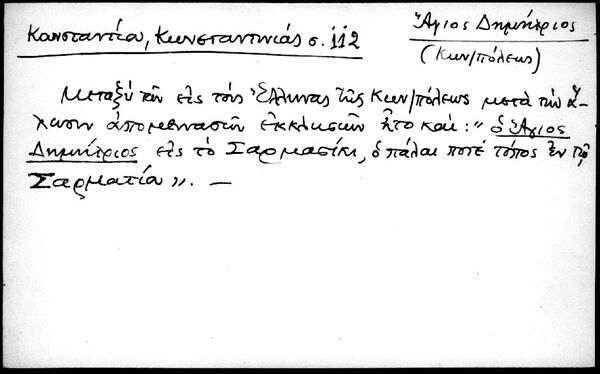 Κωνσταντίου, Κωνσταντινιάς σ. 112
Ἅγιος Δημήτριος
(Κων/πόλεως)
Μεταξὺ τῶν εἰς τοὺς Ἕλληνας τῆς Κων/πόλεως μετὰ τὴν ἅ-
λωσιν ἀπομεινασῶν ἐκκλησιῶν ἦτο καὶ: "ὁ Ἅγιος
Δημήτριος εἰς τὸ Σαρμασίκι, ὁ πάλαι ποτέ τόπος ἐν τῇ
Σαρματία». —